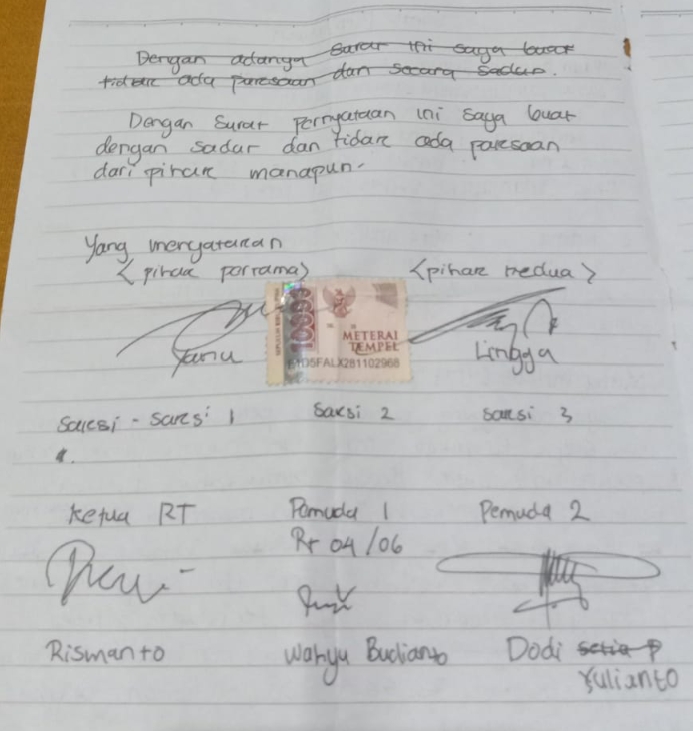 Dengan adanya surat ini saya buat
tidak ada paksaan dan secara sadar.
Dengan surat pernyataan ini saya buat
dengan sadar dan tidak ada paksaan
dari pihak manapun.
Yang menyatakan
<pihak pertama> <pihak kedua>
10000
METERAI
TEMPEL
281102968
Lingga
saksi - saksi 1 saksi 2 saksi 3
1.
Ketua RT Pemuda 1 Pemuda 2
Rt 04/06
Rismanto Wahyu Budianto Dodi setia P
Yulianto